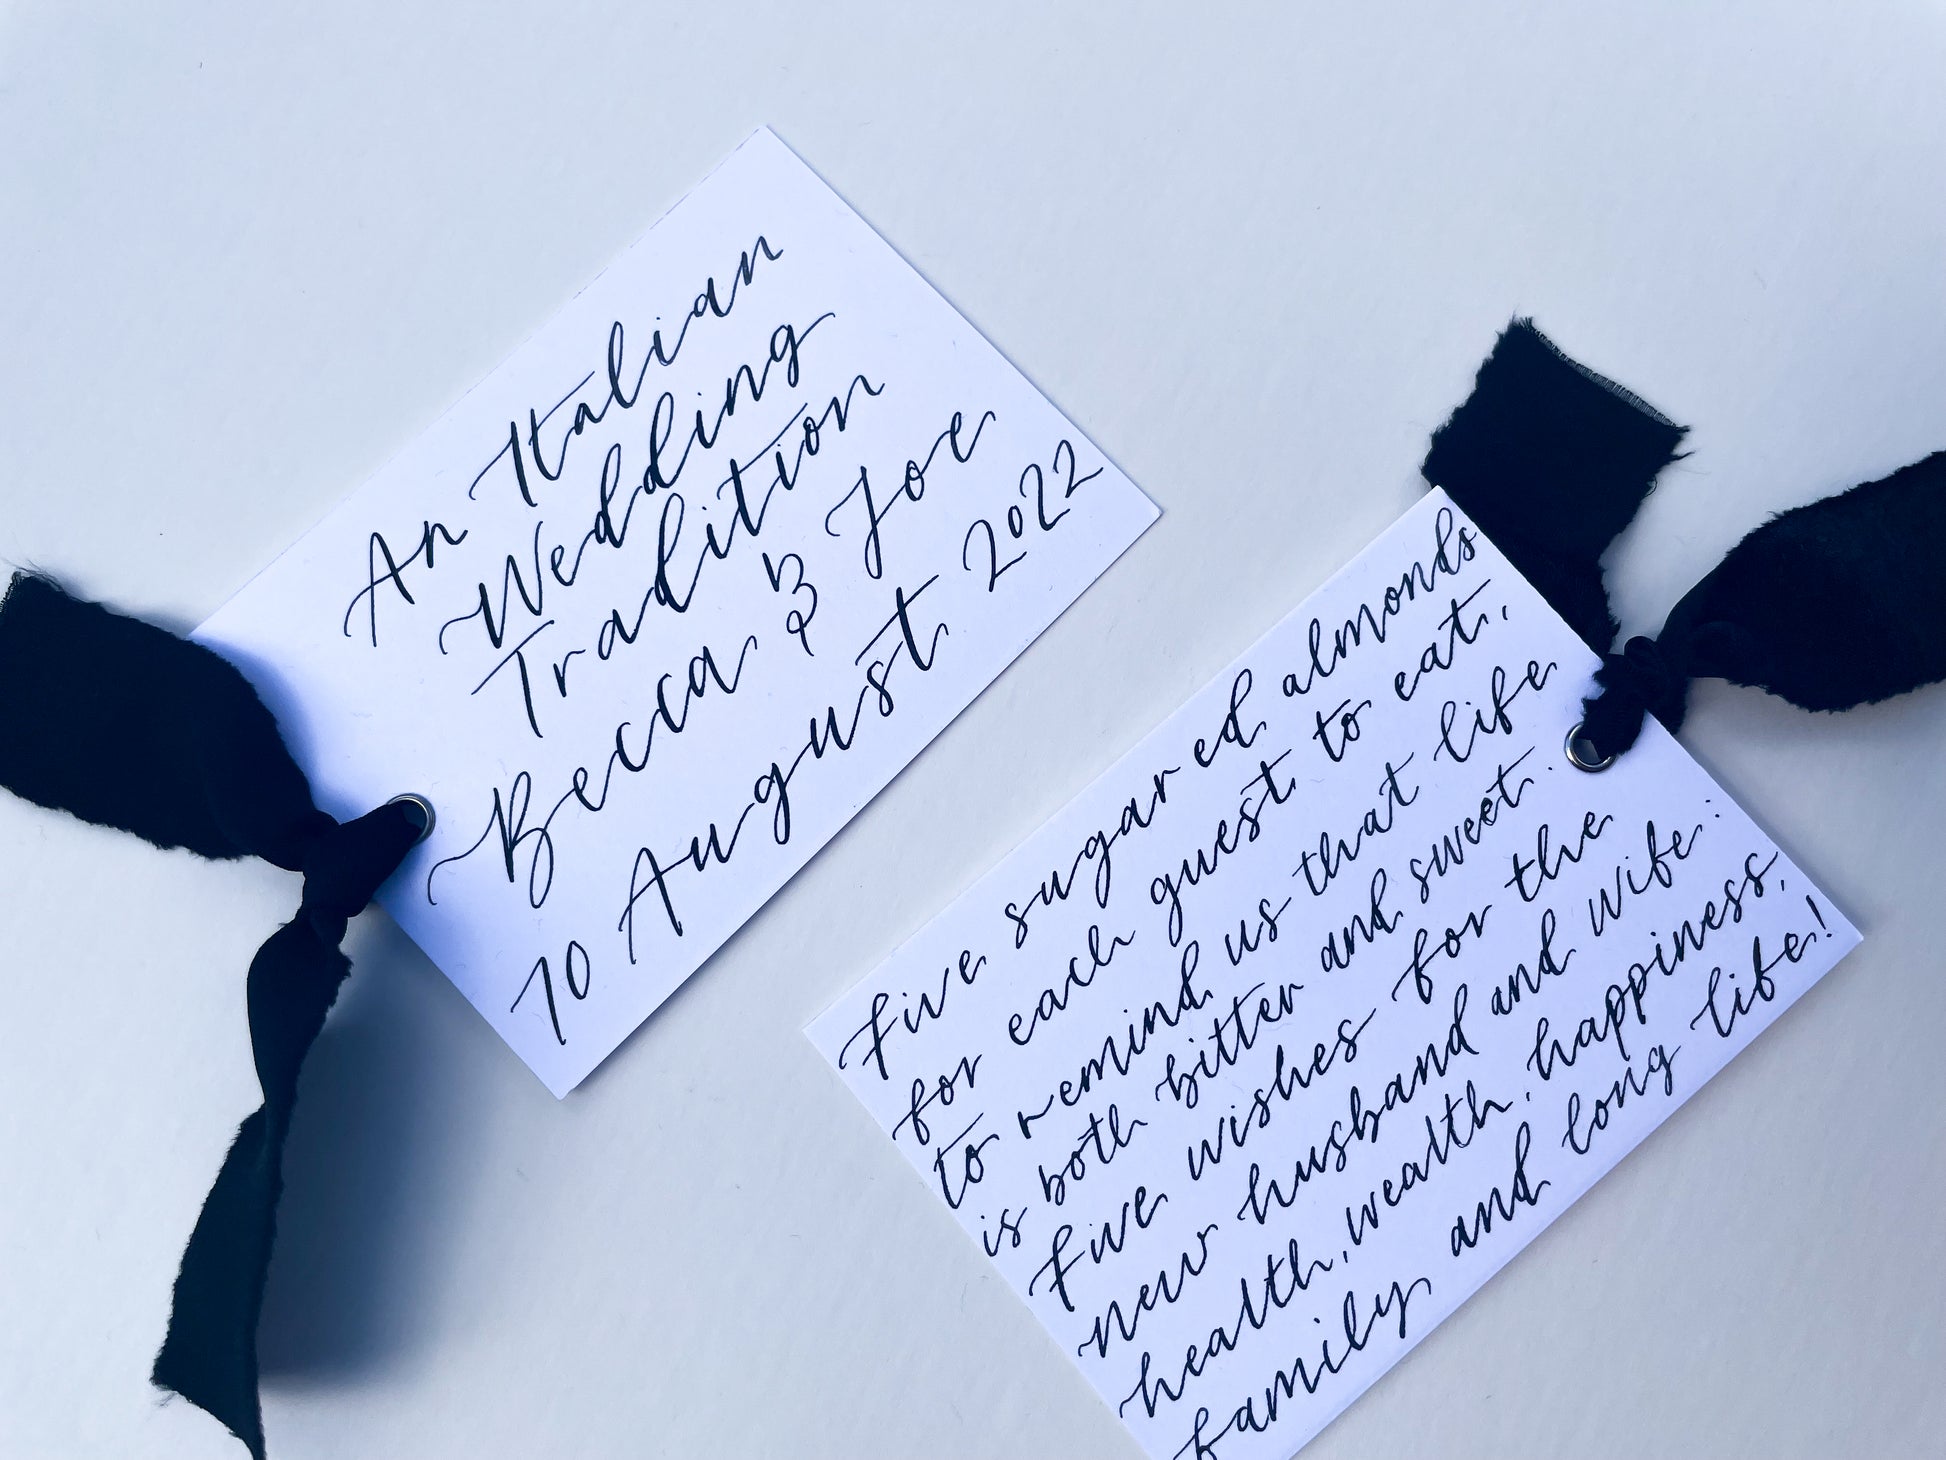 An Italian
Wedding
Tradition
Becca & Joe
10 August 2022
Five sugared almonds
for each guest to eat,
to remind us that life
is both bitter and sweet.
Five wishes for the
new husband and wife:
health, wealth, happiness,
family, and long life!